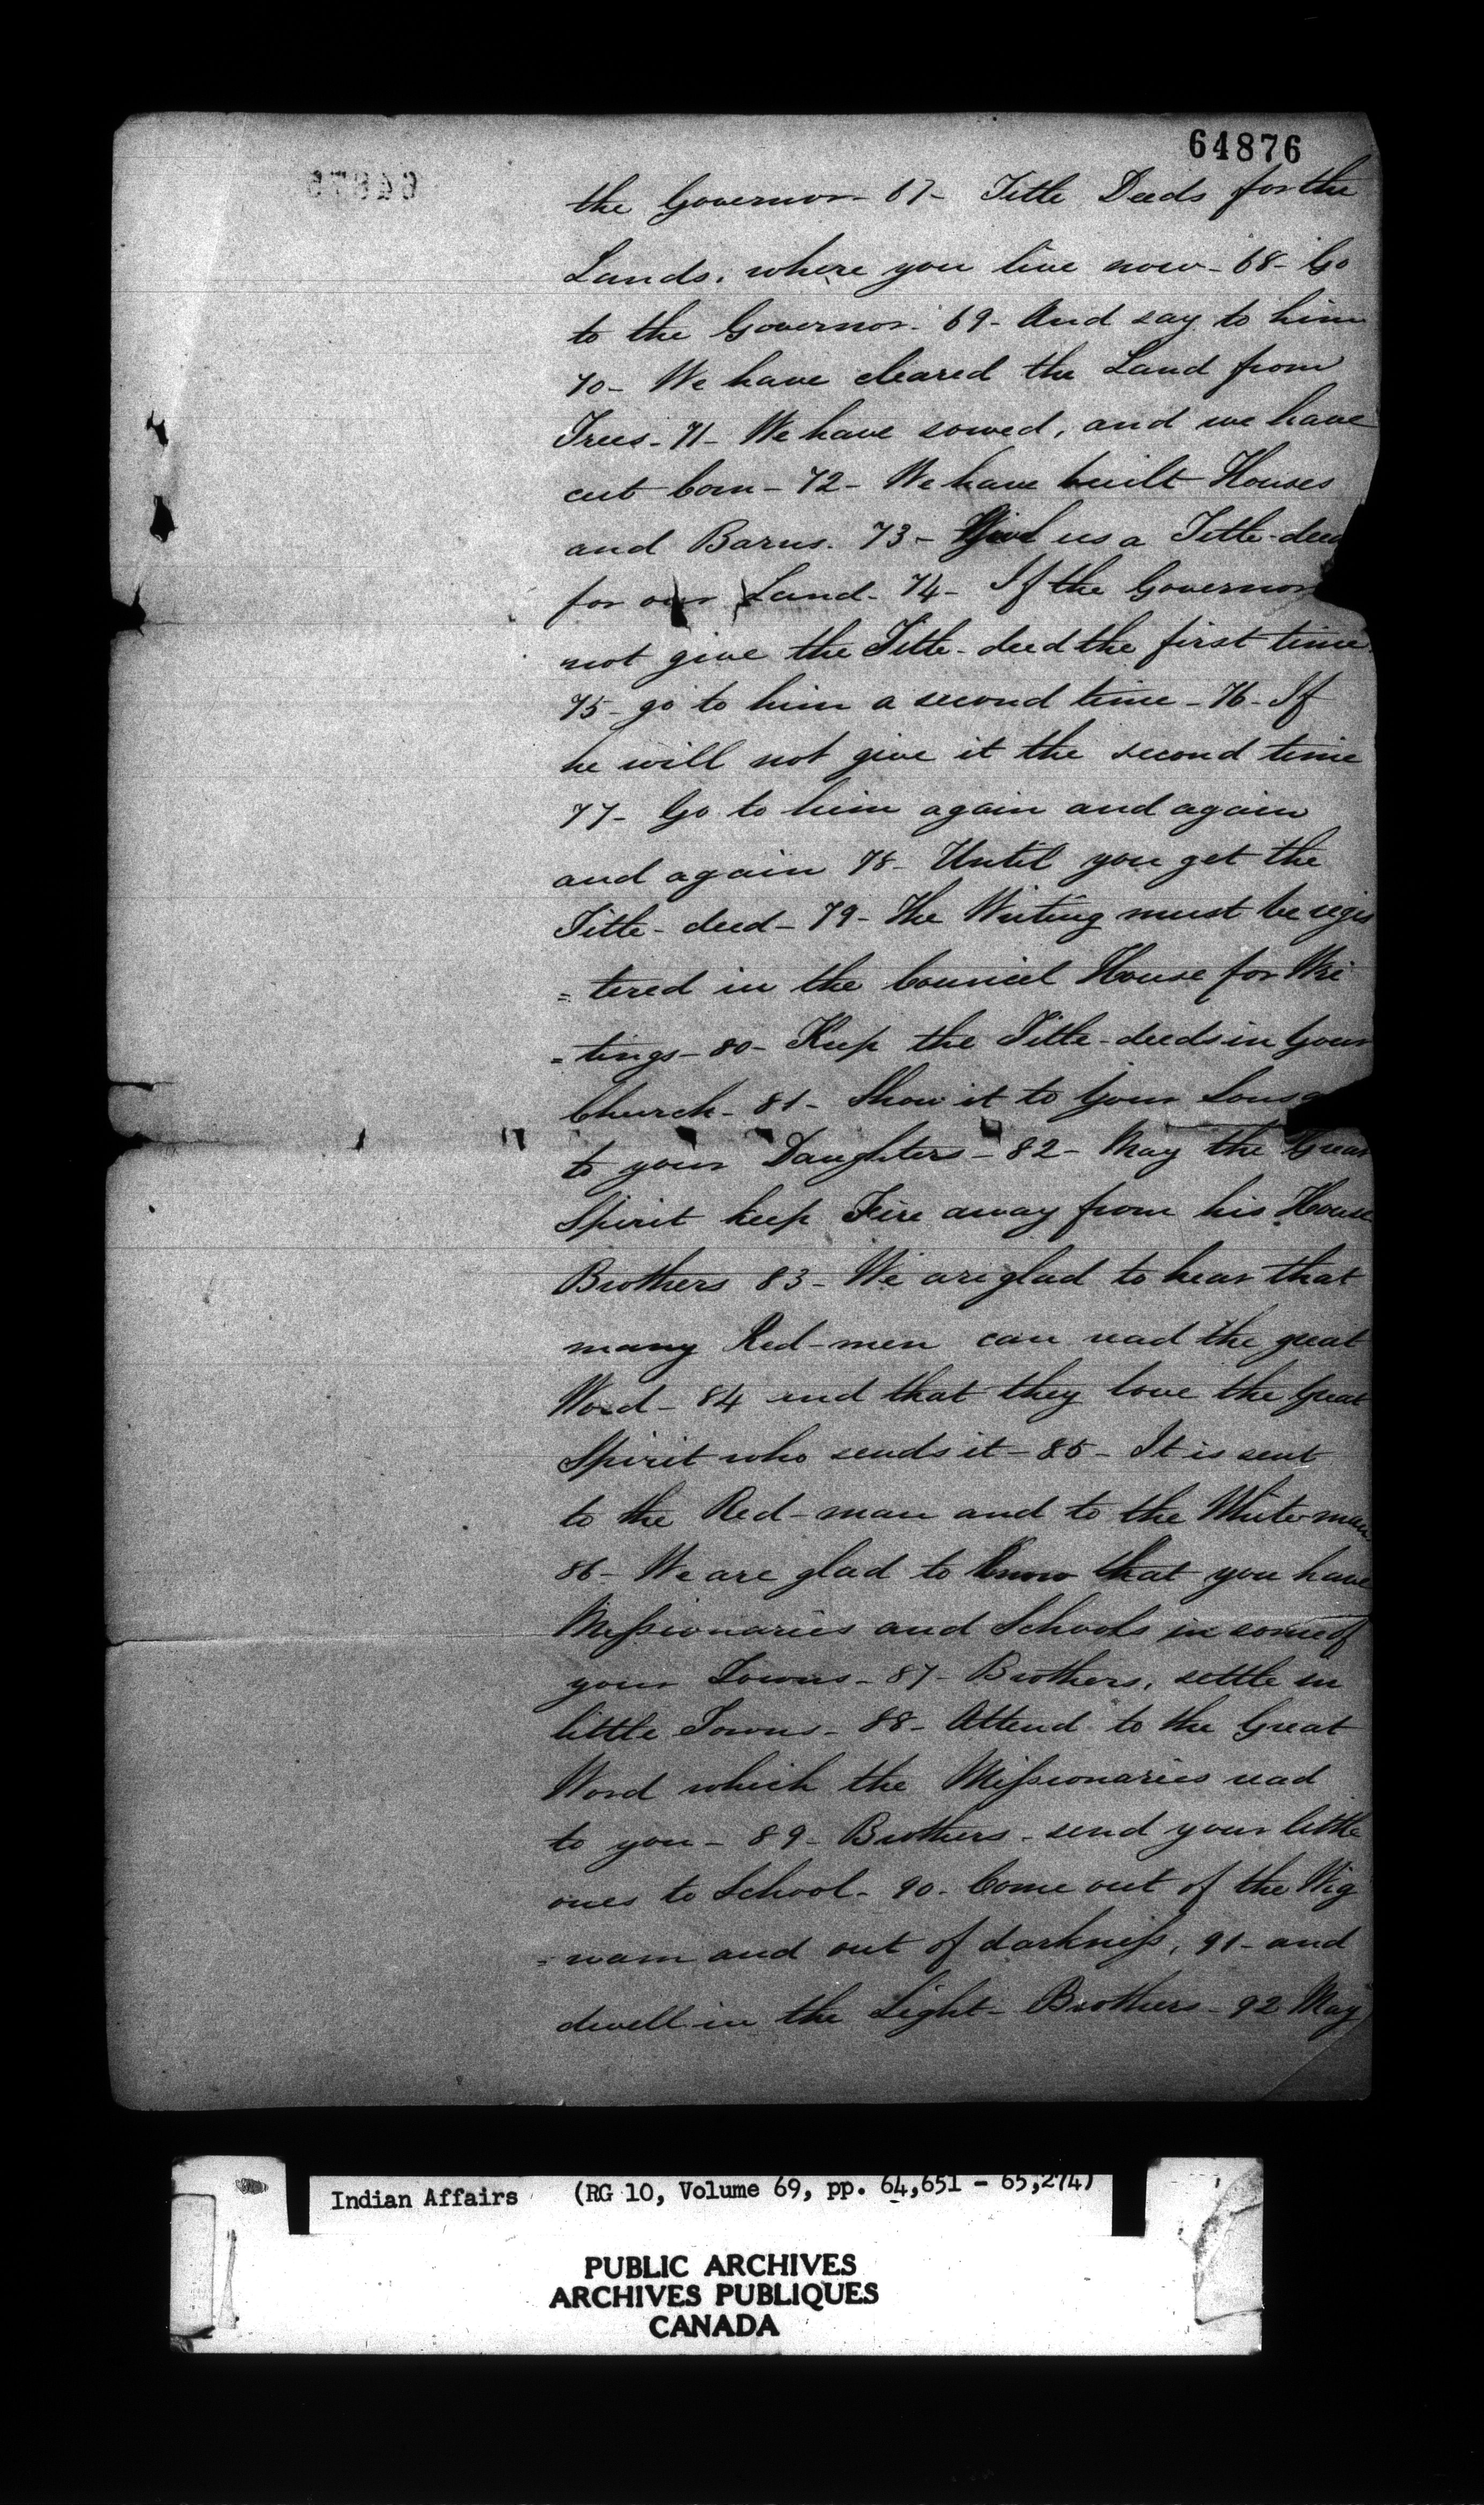 64876
the Governor - 67 - Title Deeds for the
Lands, where you live now - 68 - Go
to the Governor - 69 - And say to him
70 - We have cleared the Land from
Trees - 71 - We have sowed, and we have
cut Corn - 72 - We have built Houses
and Barns. 73 - Give us a Title-deed
for our Land - 74 - If the Governor
not give the Title-deed the first time
75 - go to him a second time - 76 - If
he will not give it the second time
77 - Go to him again and again
and again 78 - Until you get the
Title-deed - 79 - The Writing must be regis
= tered in the Council House for Wri
= tings - 80 - Keep the Title-deeds in your
Church - 81 - Show it to your Sons
to your Daughters - 82 - May the Great
Spirit keep Fire away from his House
Brothers 83 - We are glad to hear that
many Red-men can read the great
Word - 84 and that they love the Great
Spirit who sends it - 85 - It is sent
to the Red-man and to the White man
86 - We are glad to know that you have
Missionaries and Schools in some of
your Towns - 87 - Brothers, settle in
little Towns - 88 - Attend to the Great
Word which the Missionaries read
to you - 89 - Brothers - send your little
ones to School - 90 - Come out of the Wig
= wam and out of darkness, 91 - and
dwell in the Light - Brothers - 92 May
Indian Affairs (RG 10, Volume 69, pp. 64,651 - 65,274)
PUBLIC ARCHIVES
ARCHIVES PUBLIQUES
CANADA